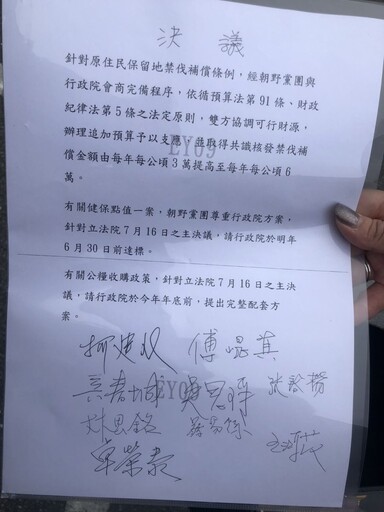 決議
針對原住民保留地禁伐補償條例，經朝野黨團與
行政院會商完備程序，依循預算法第91條、財政
紀律法第5條之法定原則，雙方協調可行財源，
辦理追加預算予以支應，並取得共識核發禁伐補
償金額由每年每公頃3萬提高至每年每公頃6
萬。
EY09
有關健保點值一案，朝野黨團尊重行政院方案，
針對立法院7月16日之主決議，請行政院於明年
6月30日前達標。
有關公糧收購政策，針對立法院7月16日之主決
議，請行政院於今年年底前，提出完整配套方
案。
柯建銘 傅崐萁
EY09
林思銘
卓榮泰